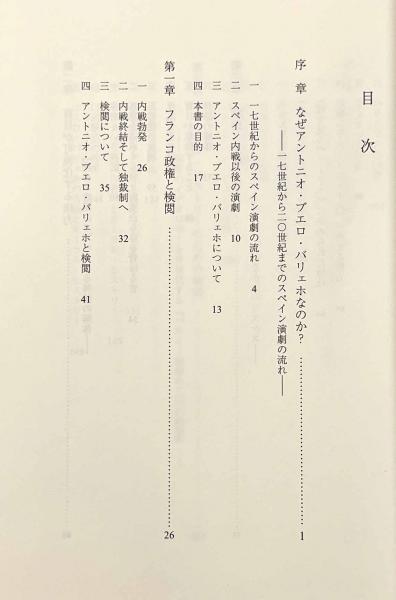 目次
序章 なぜアントニオ・ブエロ・バリェホなのか？……………………1
――一七世紀から二〇世紀までのスペイン演劇の流れ――
一 一七世紀からのスペイン演劇の流れ 4
二 スペイン内戦以後の演劇 10
三 アントニオ・ブエロ・バリェホについて 13
四 本書の目的 17
第一章 フランコ政権と検閲……………………26
一 内戦勃発 26
二 内戦終結そして独裁制へ 32
三 検閲について 35
四 アントニオ・ブエロ・バリェホと検閲 41